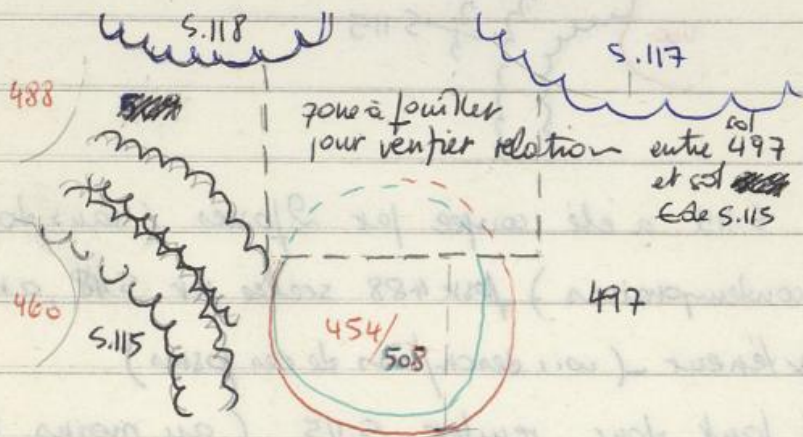 S.118
S.117
488
zone à fouiller
pour vérifier relation entre sol 497
et sol
E de S.115
460
S.115
454/
508
497